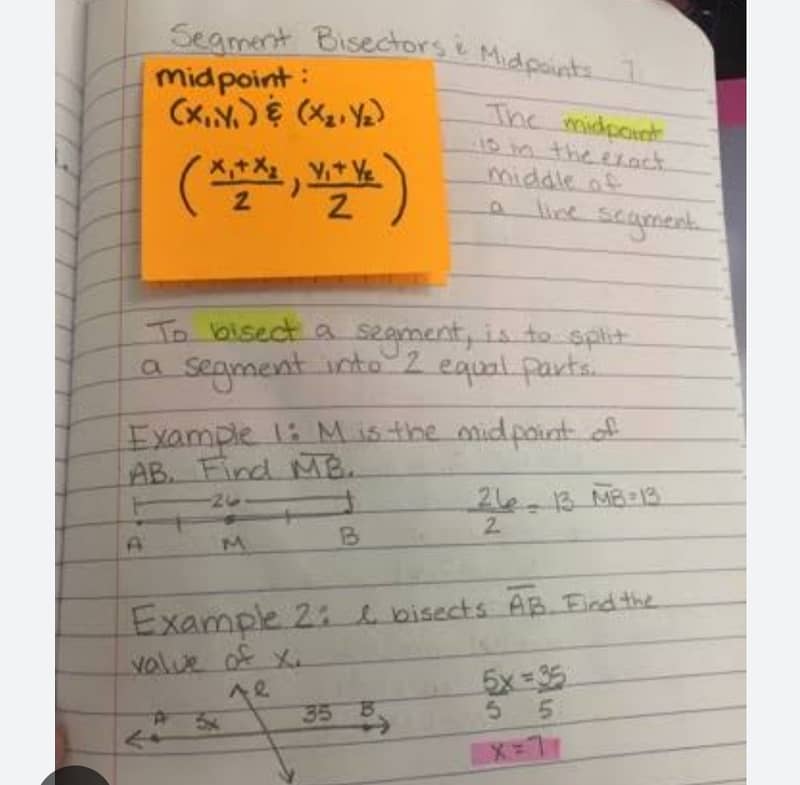 Segment Bisectors & Midpoints 7
midpoint:
(x₁,y₁) & (x₂,y₂)
(x₁+x₂/2, y₁+y₂/2)
The midpoint
is in the exact
middle of
a line segment
To bisect a segment, is to split
a segment into 2 equal parts.
Example 1: M is the midpoint of
AB. Find M̅B̅.
26
A M B
26/2 = 13 M̅B̅=13
Example 2: ℓ bisects A̅B̅. Find the
value of x.
ℓ
A 5x 35 B
5x = 35
5 5
x = 7